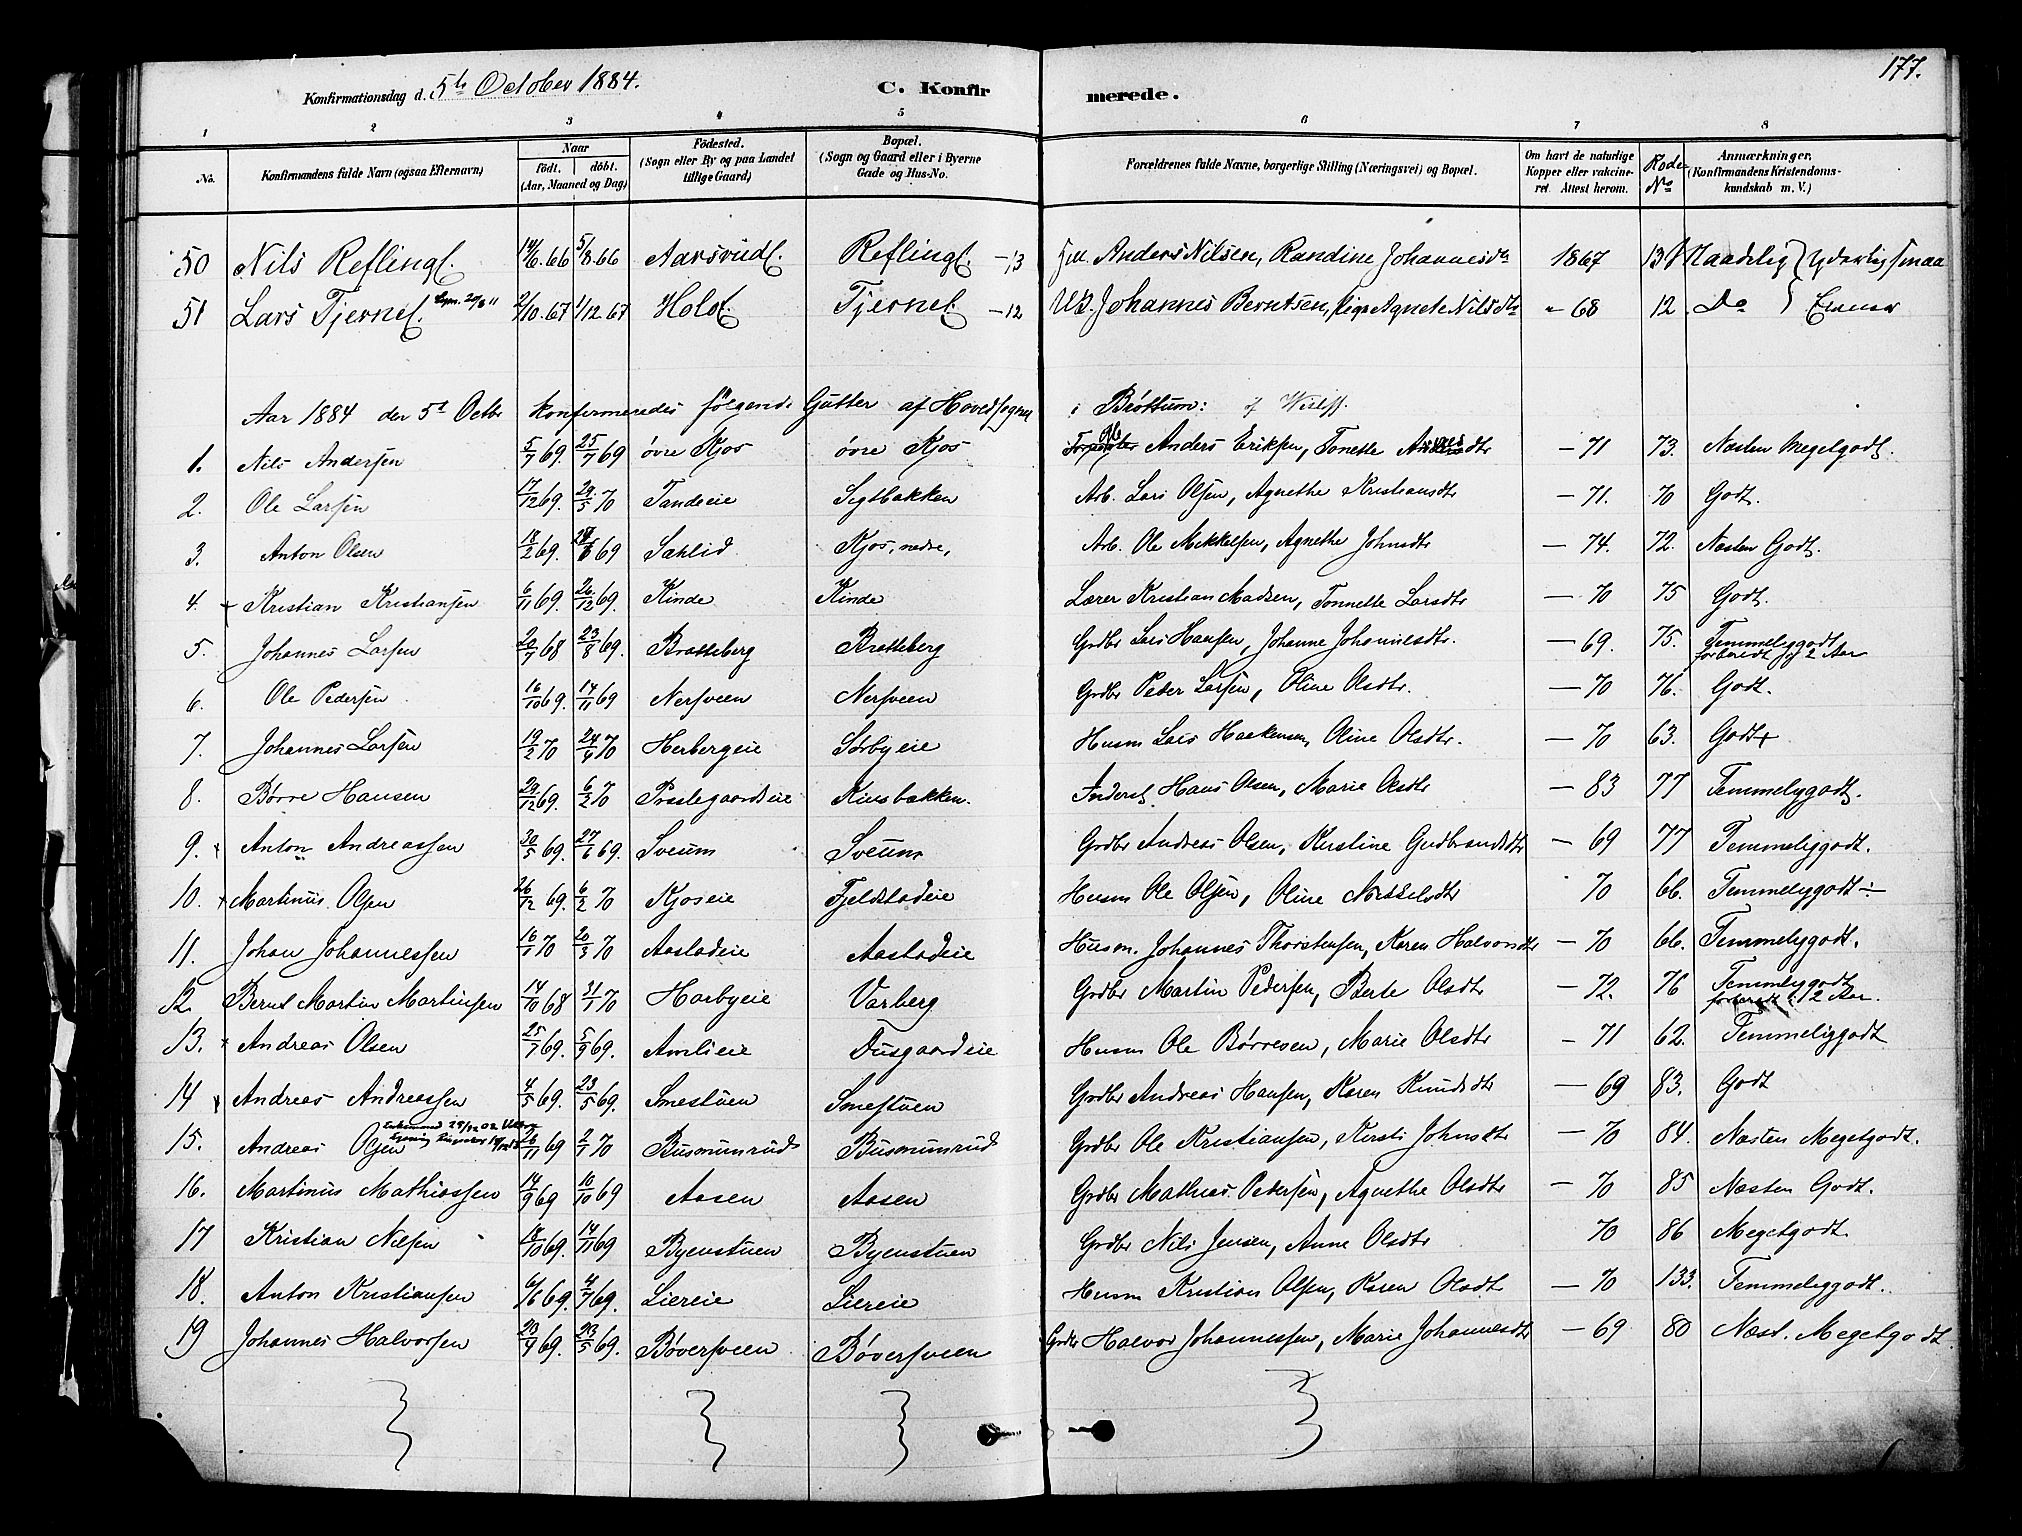 177.
Konfirmationsdag d. 5te October 1884. C. Konfirmerede.
1 2 3 4 5 6 7 8
No. Konfirmandens fulde Navn (ogsaa Efternavn) Naar født. døbt. (Aar, Maaned og Dag) Fødested. (Sogn eller By og paa Landet tillige Gaard) Bopæl. (Sogn og Gaard eller i Byerne Gade og Hus-No. Forældrenes fulde Navne, borgerlige Stilling (Næringsvei) og Bopæl. Om havt de naturlige Kopper eller vakcineret. Attest herom. Rode No Anmærkninger. (Konfirmandens Kristendomskundskab m. V.)
50 Nils Reflingl. 14/6.66 5/8.66 Aarsrudl. Reflingl. -13 Anders Nilsen, Randine Johannesdr 1867 13 Maadelig
51 Lars Tjernel. 2/10.67 1/12 67 Holol. Tjernel -12 Johannes Berntsen, Agnete Nilsdr " 68 12. Do
Aar 1884 den 5te Octbr konfirmeredes følgende Gutter af Hovedsognet i Brøttum:
1. Nils Andersen 5/7 69. 25/7 69 øvre Kjos øvre Kjos Anders Eriksen, Tonette — 71 73. Næsten Megetgodt.
2. Ole Larsen 17/12 69. 29/5 70 Tandeie Sigtbakken Arb. Lars Olsen, Agnethe Kristiansdtr — 71. 70 Godt.
3. Anton Olsen 18/2 69. 69 Sæhlid Kjos, nedre, Arb. Ole Mikkelsen, Agnethe Johnsdtr — 74. 72. Næsten Godt.
4. Kristian Kristiansen 6/11 69. 26/12 69. Kinde Kinde Lærer Kristian Madsen, Tonnette Larsdtr — 70 75 Godt.
5. Johannes Larsen 20/7 68 23/8 69. Bratteberg Bratteberg Grdbr Lars Hansen, Johanne Johannesdtr. — 69. 75. Temmeliggodt
2 Aar
6. Ole Pedersen 16/10 69. 14/11 69 Nersveen Nersveen Grdbr Peder Larsen, Oline Olsdtr. — 70 76. Godt.
7. Johannes Larsen 19/2 70 24/4 70 Herbergeie Sørbyeie Husm Lars Haakensen, Oline Olsdtr. — 70 63. Godt
8. Børre Hansen 29/12 69. 6/2 70 Præstegaardseie Kinsbakken. Inderst. Hans Olsen, Marie Olsdtr — 83 77 Temmeliggodt.
9. Anton Andreassen 30/5 69. 27/6 69. Sveum Sveum Grdbr Andreas Olsen, Kirstine Gudbrandsdtr — 69 77 Temmeliggodt.
10. Martinus Olsen 26/12 69. 6/2 70 Kjoseie Fjeldstadeie Husm Ole Olsen, Oline Mikkelsdtr 70 66. Temmeliggodt ÷
11. Johan Johannessen 16/1 70 20/3 70 Aastadeie Aastadeie Husm. Johannes Thorstensen, Karen Halvorsdtr — 70 66. Temmeliggodt.
12. Bernt Martin Martinsen 14/10 68 31/1 70 Harbyeie Varberg Grdbr Martin Pedersen, Berte Olsdtr — 72. 76 Temmeliggodt
2 Aar.
13. Andreas Olsen 25/7 69. 5/9 69. Amlieie Dusgaardeie Husm Ole Børresen, Marie Olsdtr — 71 62. Temmeliggodt
14 Andreas Andreassen 4/5 69. 23/5 69. Smestuen Smestuen Grdbr Andreas Hansen, Karen Knudsdtr — 69 83. Godt
15. Andreas Olsen 26/11 69 2/1 70 Busmunrud Busmunrud Grdbr Ole Kristiansen, Kirsti Johnsdtr — 70 84. Næsten Megetgodt.
16. Martinus Mathiassen 14/9 69 10/10 69 Aasen Aasen Grdbr Mathias Pedersen, Agnethe Olsdtr — 70 85 Næsten Godt.
17 Kristian Nilsen 18/10 69. 14/11 69 Byenstuen Byenstuen Grdbr Nils Jensen, Anne Olsdtr 70 86 Megetgodt.
18. Anton Kristiansen 6/6 69. 4/7 69. Liereie Liereie Husm Kristian Olsen, Karen Olsdtr — 70 133. Temmeliggodt.
19 Johannes Halvorsen 23/4 69. 23/5 69. Bøversveen Bøversveen Grdbr Halvor Johannessen, Marie Johannesdtr — 69. 80 Næst. Megetgodt.